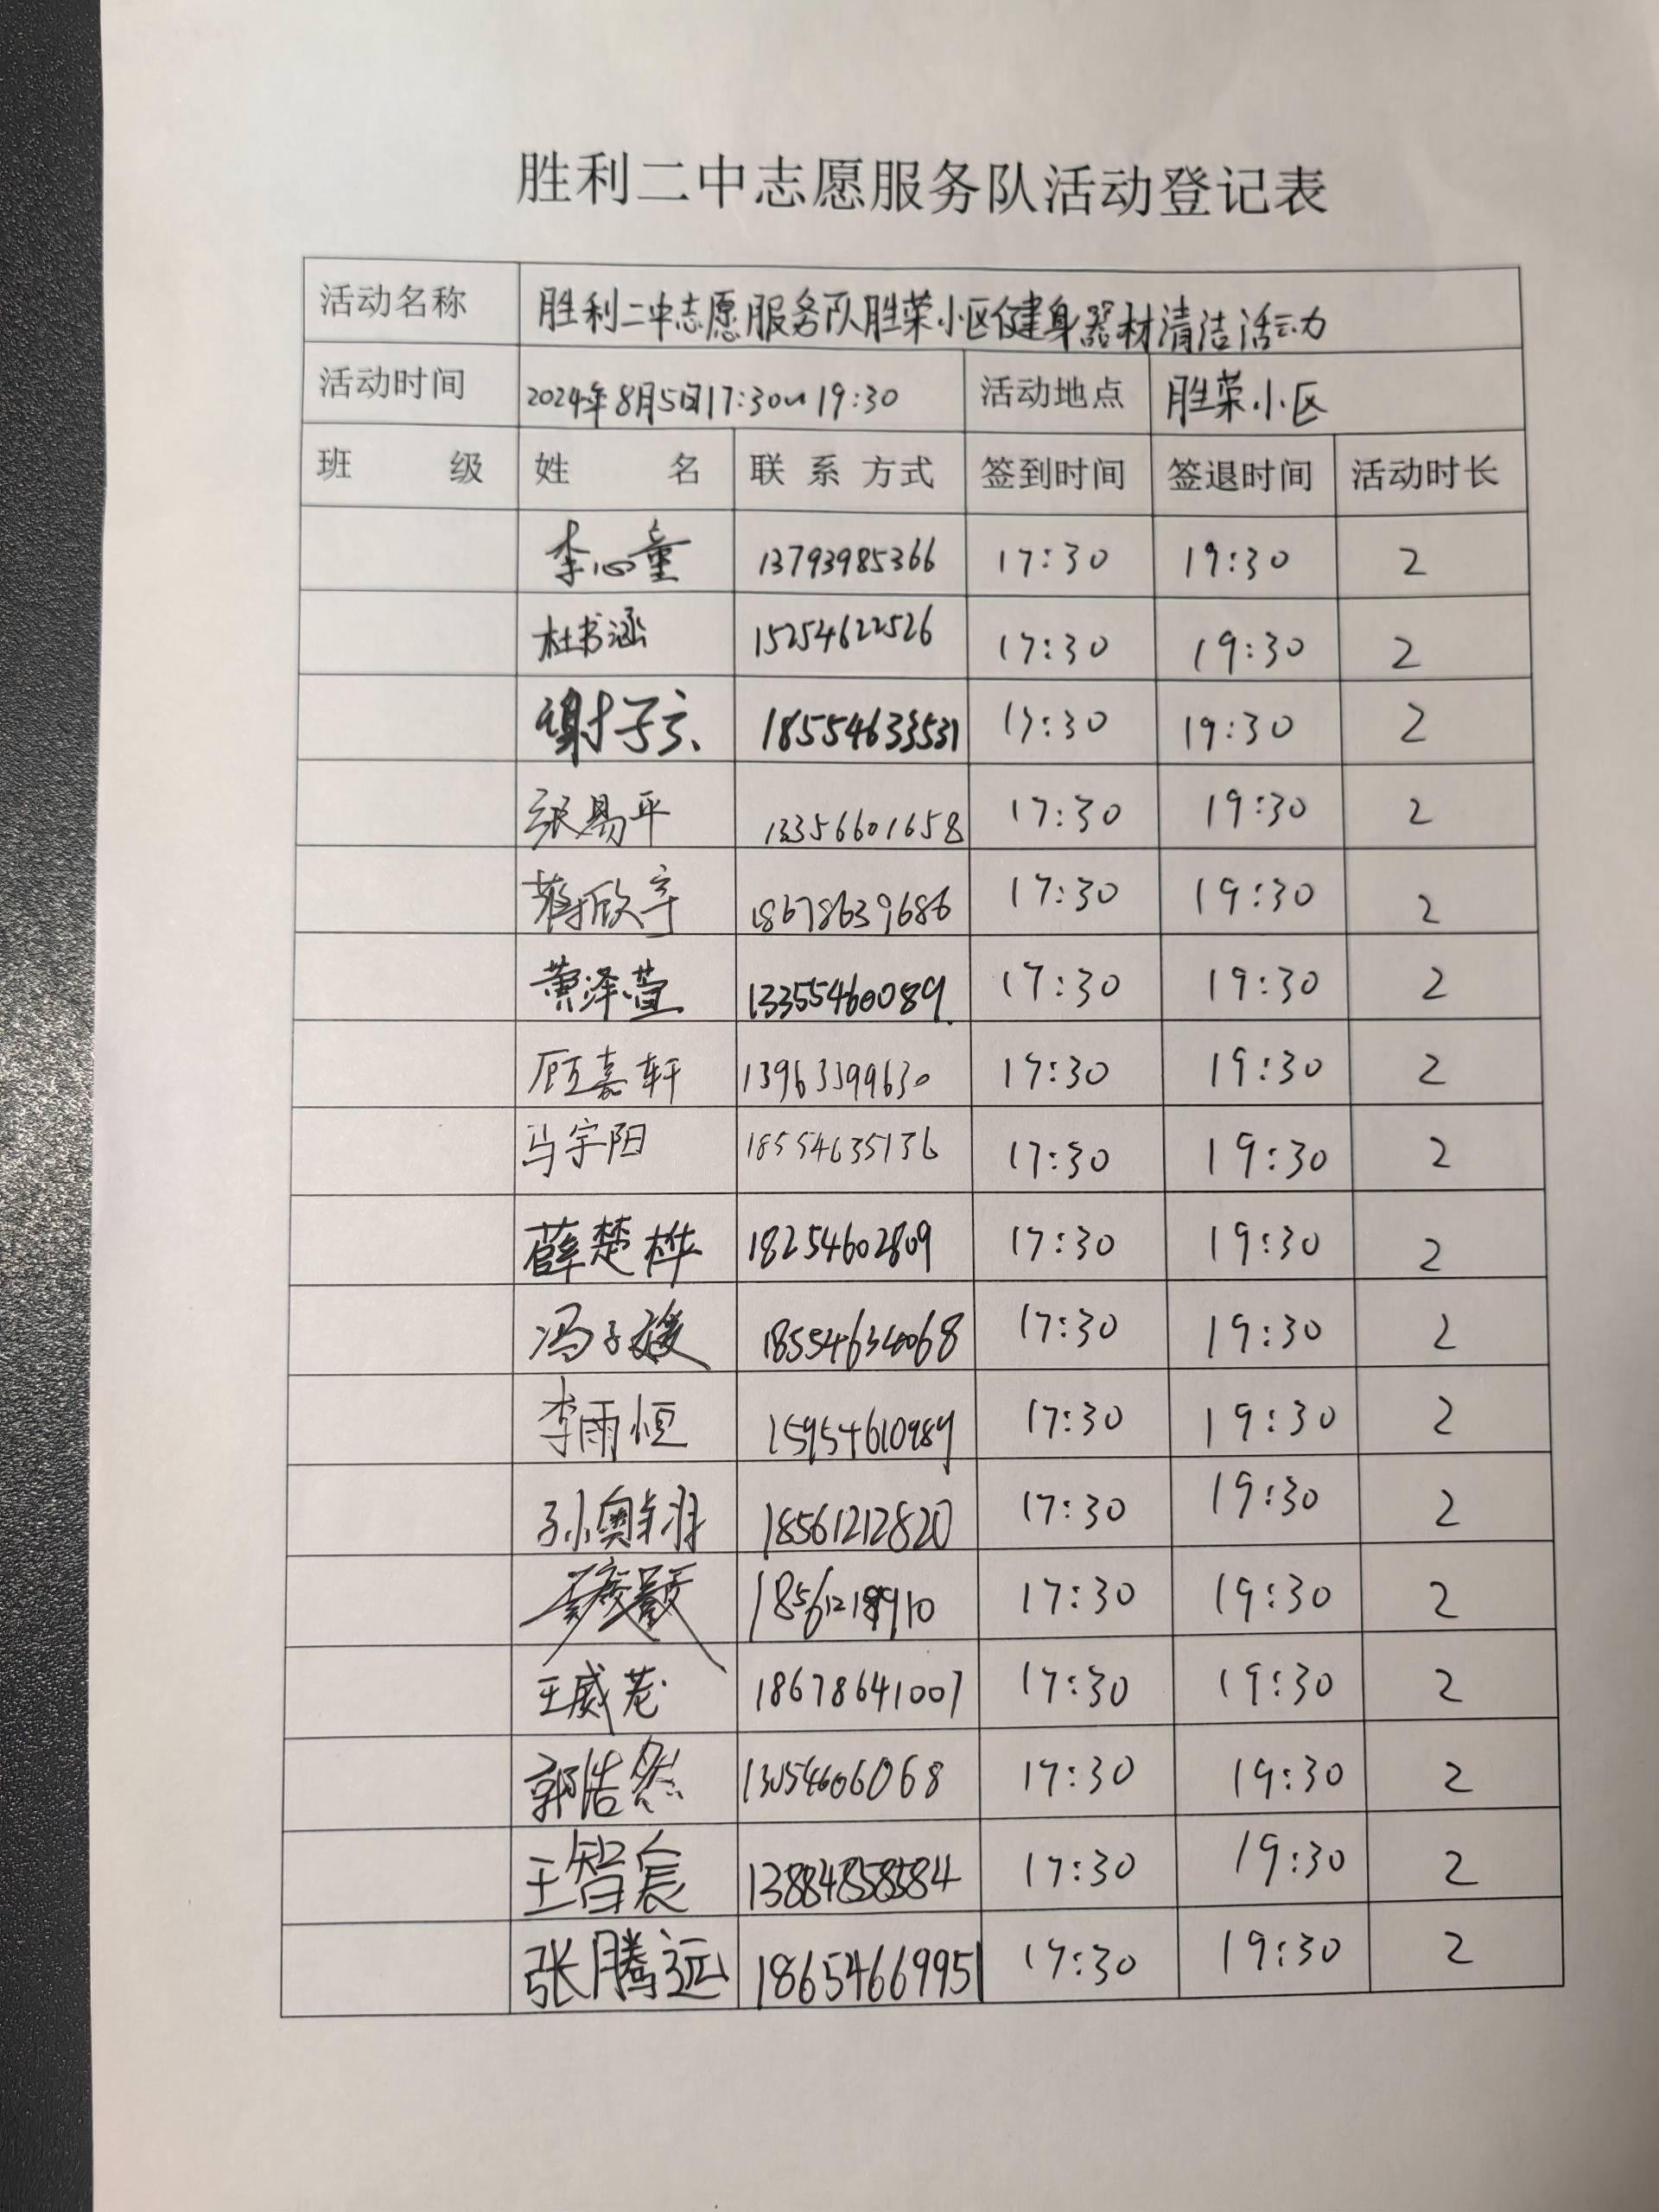 胜利二中志愿服务队活动登记表
活动名称 胜利二中志愿服务队胜荣小区健身器材清洁活动
活动时间 2024年8月5日17:30~19:30 活动地点 胜荣小区
班 级 姓 名 联 系 方式 签到时间 签退时间 活动时长
李心童 13793985366 17:30 19:30 2
杜书涵 15254622526 17:30 19:30 2
谢子言 18554633531 17:30 19:30 2
张易平 13356601658 17:30 19:30 2
蒋欣宇 18678639686 17:30 19:30 2
黄泽萱 13355460089 17:30 19:30 2
顾嘉轩 13963399630 17:30 19:30 2
马宇阳 18554635136 17:30 19:30 2
薛楚桦 18254602809 17:30 19:30 2
冯子媛 18554634068 17:30 19:30 2
李雨恒 15954610989 17:30 19:30 2
孙奥翔 18561212820 17:30 19:30 2
17:30 19:30 2
王威茏 18678641007 17:30 19:30 2
郭浩然 13054606068 17:30 19:30 2
王智宸 13884858584 17:30 19:30 2
张腾远 18654669951 17:30 19:30 2